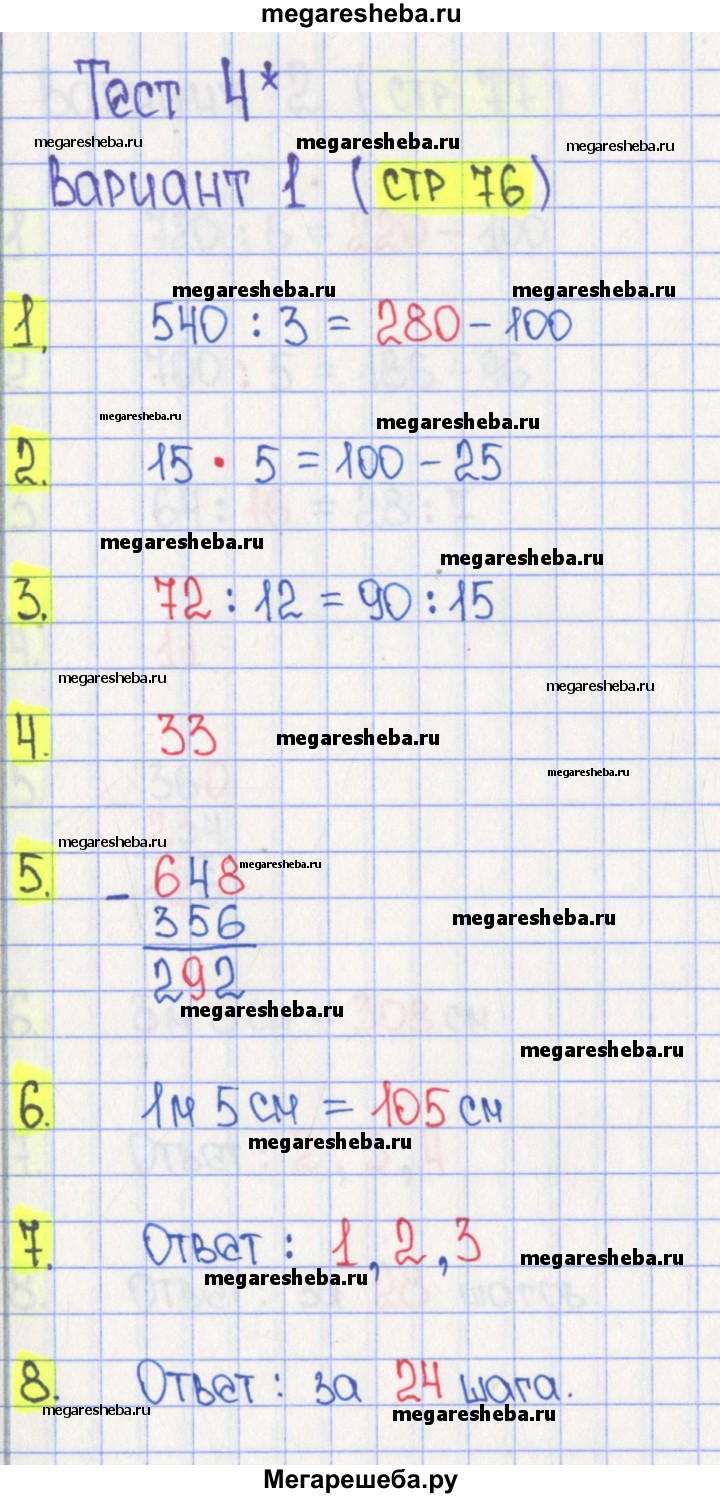 megaresheba.ru
Тест 4*
megaresheba.ru megaresheba.ru megaresheba.ru
Вариант 1 (стр 76)
megaresheba.ru megaresheba.ru
1. 540 : 3 = 280 - 100
megaresheba.ru megaresheba.ru
2. 15 · 5 = 100 - 25
megaresheba.ru megaresheba.ru
3. 72 : 12 = 90 : 15
megaresheba.ru megaresheba.ru
4. 33 megaresheba.ru
megaresheba.ru
megaresheba.ru
5. - 648 megaresheba.ru
356 megaresheba.ru
292
megaresheba.ru
megaresheba.ru
6. 1м 5 см = 105 см
megaresheba.ru
7. Ответ : 1, 2, 3 megaresheba.ru
megaresheba.ru
8. Ответ : за 24 шага.
megaresheba.ru megaresheba.ru
Мегарешеба.ру